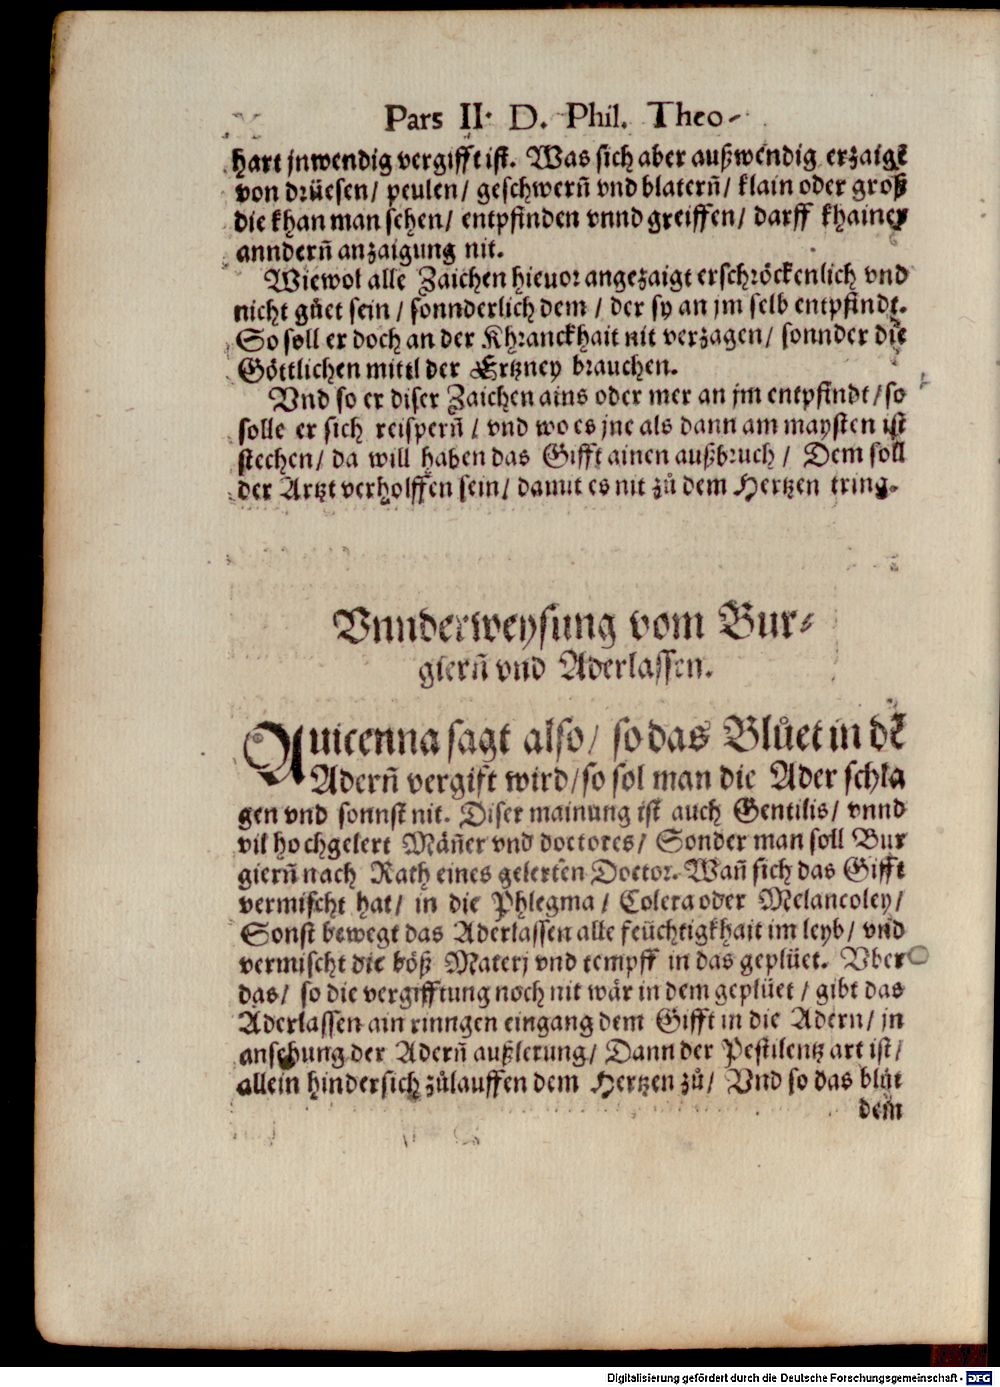 Pars II. D. Phil. Theo-
hart jnwendig vergifft ist. Was sich aber außwendig erzaigt
von drüesen/ peulen/ geschwern̄ vnd blatern̄/ klain oder groß
die khan man sehen/ entpfinden vnnd greiffen/ darff khainer
anndern̄ anzaigung nit.
Wiewol alle Zaichen hieuor angezaigt erschröckenlich vnd
nicht gůet sein/ sonnderlich dem/ der sy an jm selb entpfindt.
So soll er doch an der Khranckhait nit verzagen/ sonnder die
Göttlichen mittl der Ertzney brauchen.
Vnd so er diser Zaichen ains oder mer an jm entpfindt/ so
solle er sich reispern̄/ vnd wo es jne als dann am maysten ist
stechen/ da will haben das Gifft ainen außbruch/ Dem soll
der Artzt verholffen sein/ damit es nit zů dem Hertzen tring.
Vnnderweysung vom Bur-
giern̄ vnd Aderlassen.
Auicenna sagt also/ so das Blůet in dē
Adern̄ vergift wird/ so sol man die Ader schla
gen vnd sonnst nit. Diser mainung ist auch Gentilis/ vnnd
vil hochgelert Män̄er vnd doctores/ Sonder man soll Bur
giern̄ nach Rath eines gelerten Doctor. Wan̄ sich das Gifft
vermischt hat/ in die Phlegma/ Colera oder Melancoley/
Sonst bewegt das Aderlassen alle feüchtigkhait im leyb/ vnd
vermischt die böß Materj vnd tempff in das geplüet. Vber
das/ so die vergifftung noch nit wär in dem geplüet/ gibt das
Aderlassen ain rinngen eingang dem Gifft in die Adern/ jn
ansehung der Adern̄ außlerung/ Dann der Pestilentz art ist/
allein hindersich zůlauffen dem Hertzen zů/ Vnd so das blůt
dem
Digitalisierung gefördert durch die Deutsche Forschungsgemeinschaft - DFG